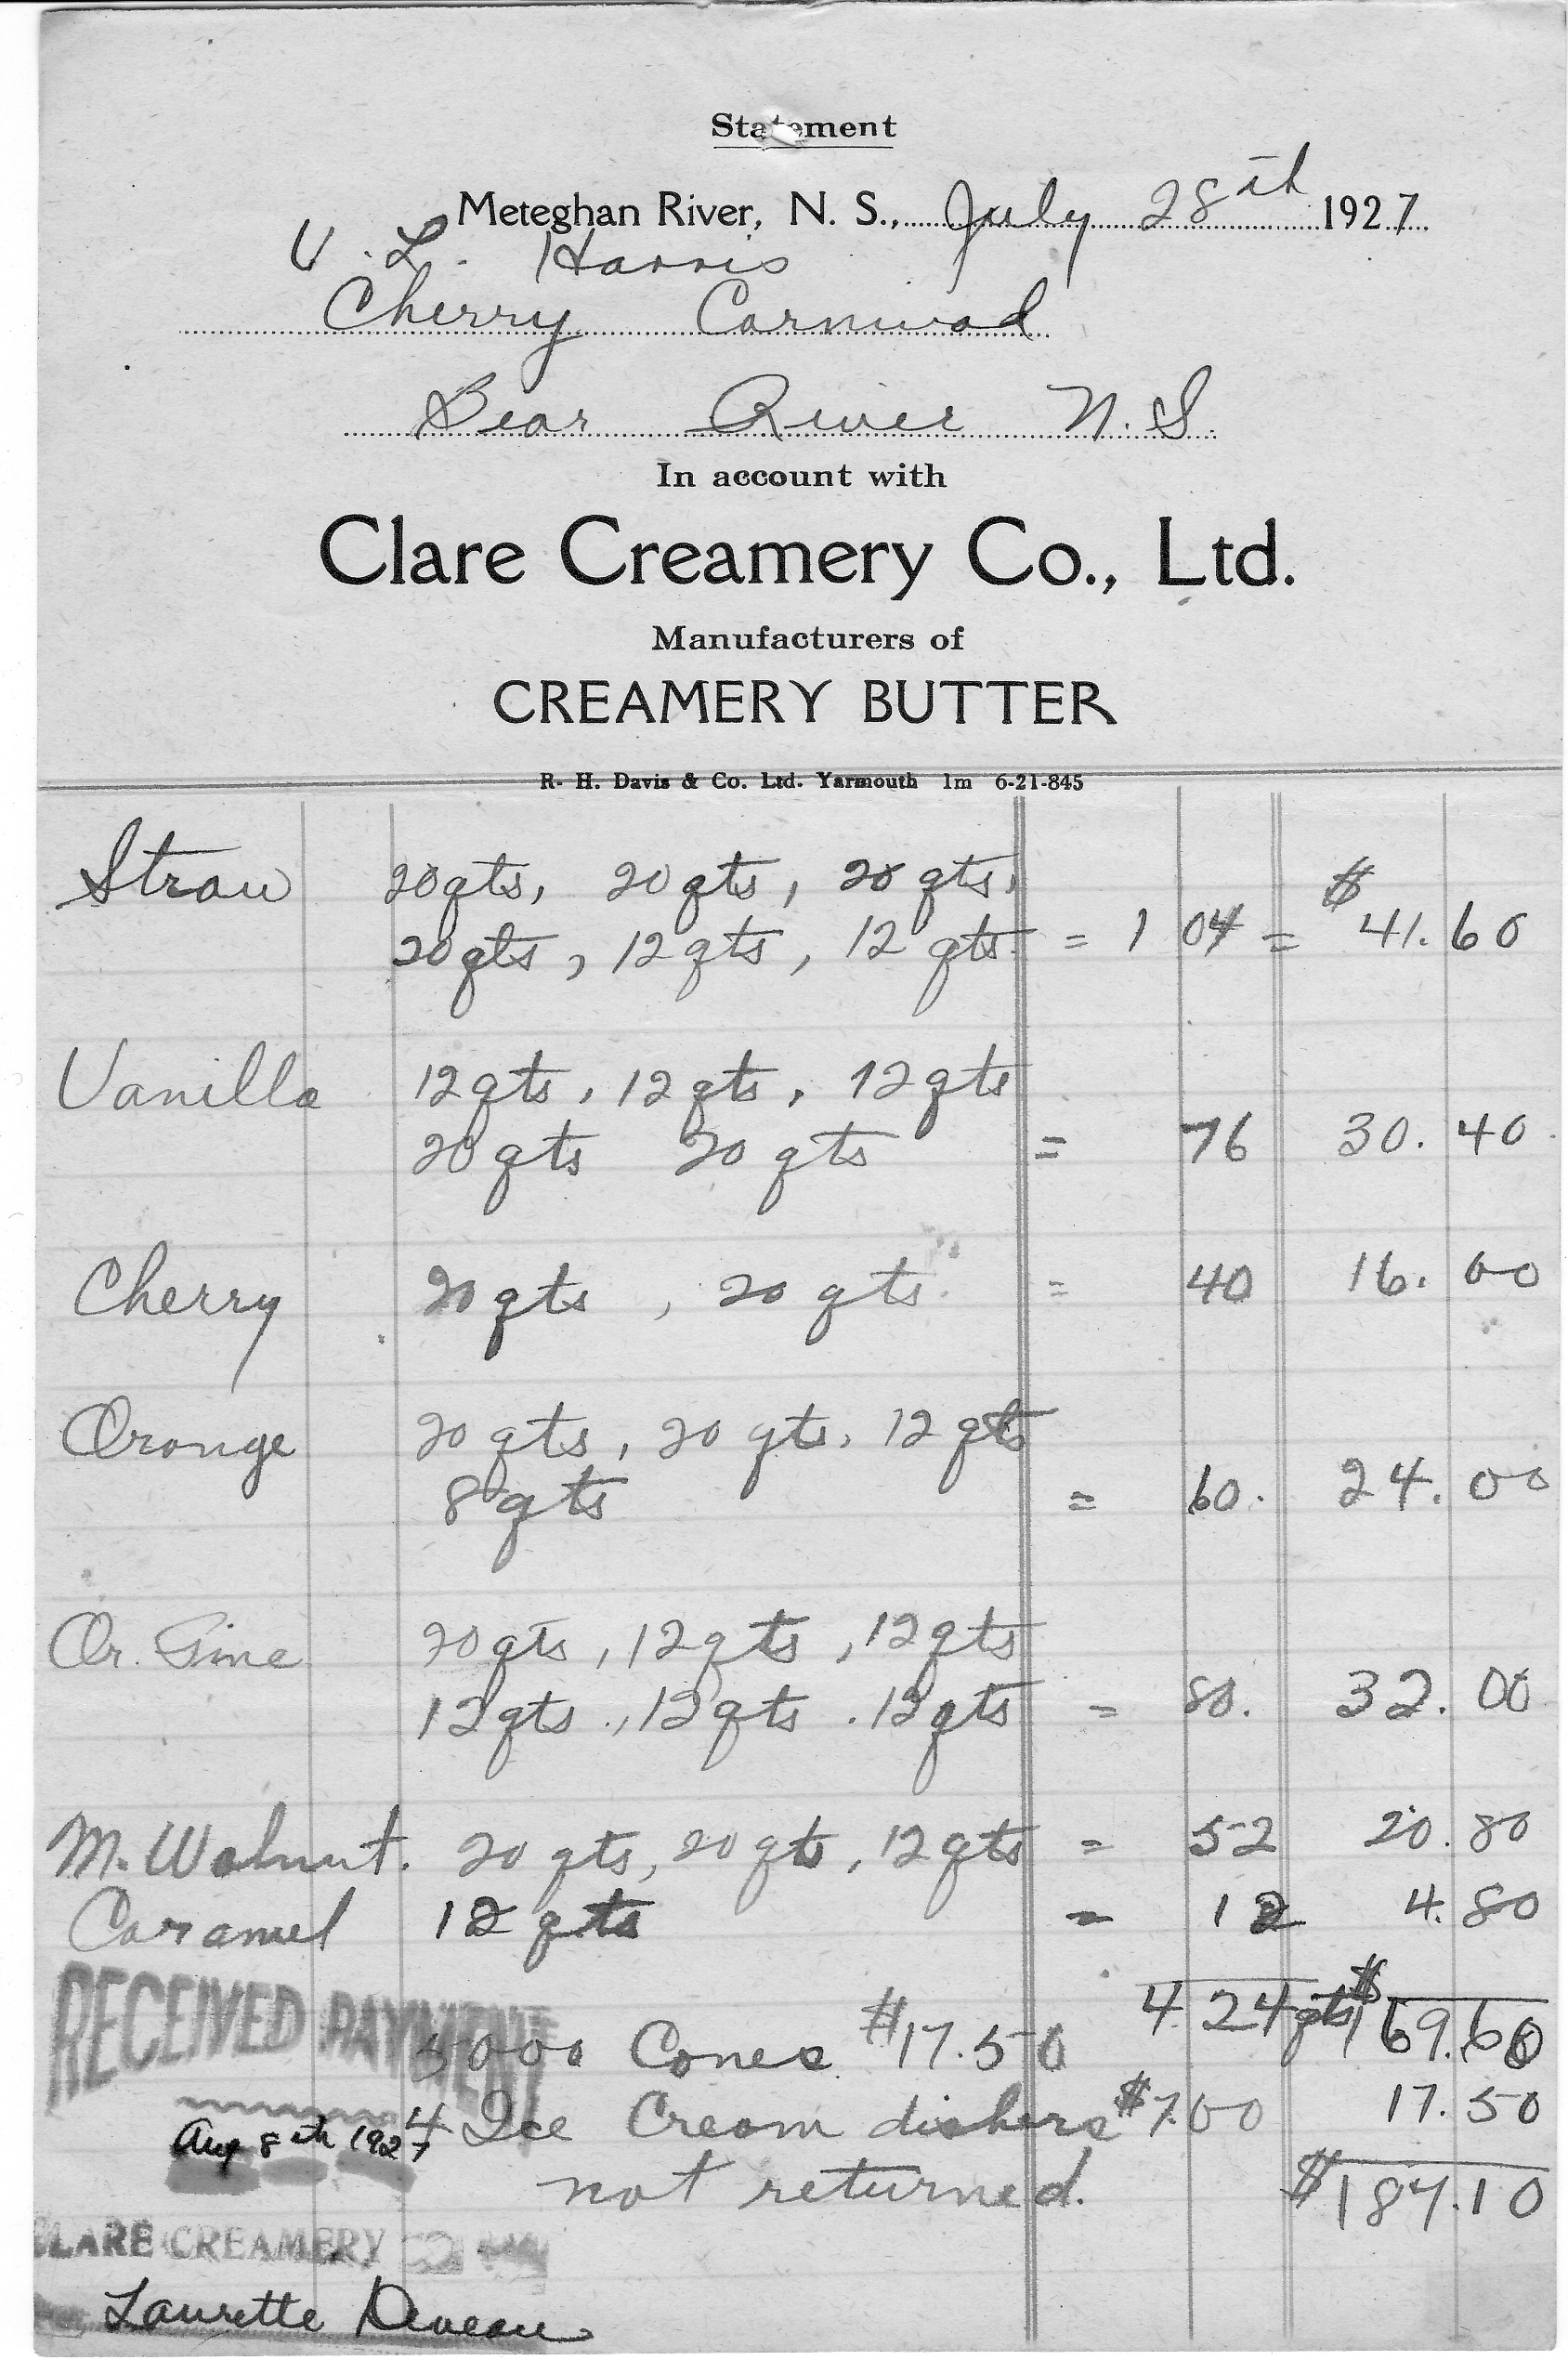 Statement
Meteghan River, N. S., July 28th 1927
V. L. Harris
Cherry Carnival
Bear River N.S.
In account with
Clare Creamery Co., Ltd.
Manufacturers of
CREAMERY BUTTER
R. H. Davis & Co. Ltd. Yarmouth 1m 6-21-845
Straw 20 qts, 20 qts, 20 qts,
20 qts, 12 qts, 12 qts = 104 = $41.60
Vanilla 12 qts, 12 qts, 12 qts
20 qts 20 qts = 76 30.40
Cherry 20 qts, 20 qts. = 40 16.00
Orange 20 qts, 20 qts, 12 qts
8 qts = 60. 24.00
Or. Pine 20 qts, 12 qts, 12 qts
12 qts, 12 qts, 12 qts = 80. 32.00
M. Walnut. 20 qts, 20 qts, 12 qts = 52 20.80
Caramel 12 qts = 12 4.80
424 qts $169.60
RECEIVED PAYMENT
5000 Cones $17.50
17.50
Aug 8th 1927
4 Ice Cream dishers $7.00
not returned.
$187.10
CLARE CREAMERY
Laurette Deveau